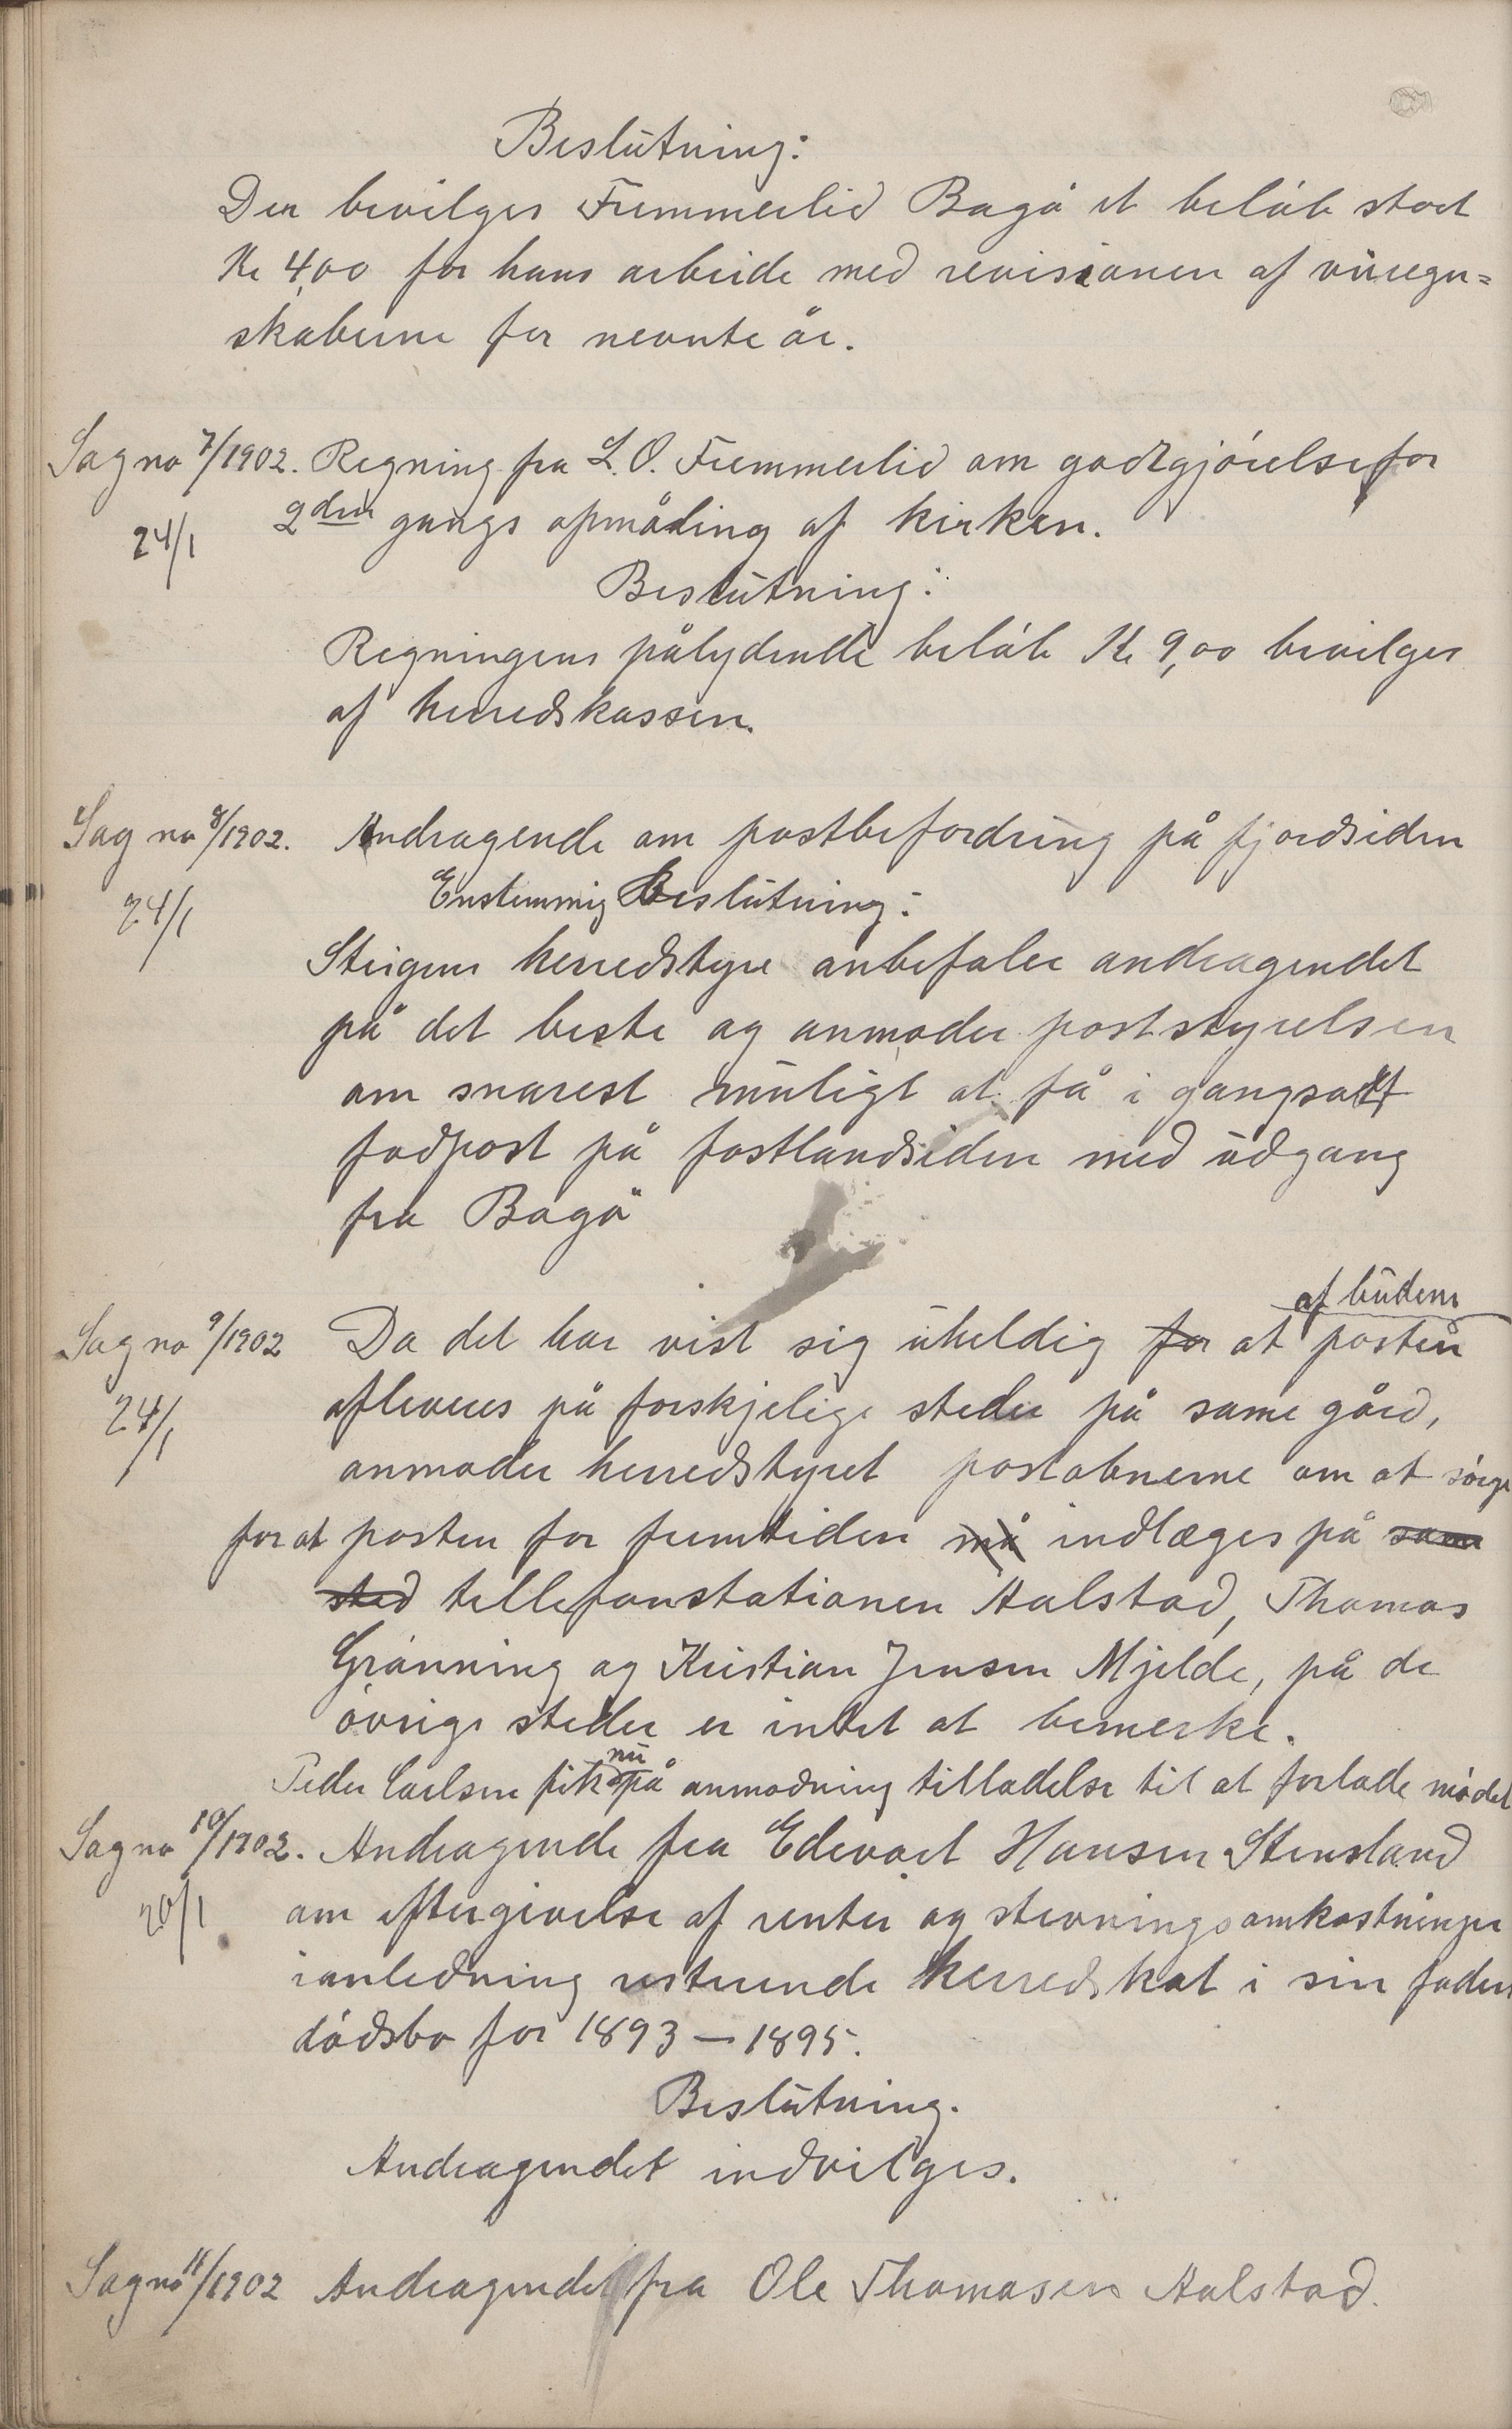 Beslutning:
Der bevilges Fremmerlid Bogö et beløb stort
Kr 4,00 for hans arbeide med revisionen af veiregn=
skaberne for nevnte år.
Sag no 7/1902. Regning fra L. O. Fremmerlid om godtgjörelse for
24/1 2den gangs opmåling af kirken.
Beslutning:
Regningens pålydende belöb Kr 9,00 bevilges
af herredskassen.
Sag no 8/1902. Andragende om postbefordring på fjordsiden
24/1 Enstemmig Beslutning:
Steigens herredstyre anbefaler andragendet
på det beste og anmoder poststyrelsen
om snarest muligt at få i gangsatt
fodpost på fastlandsiden med udgang
fra Bogö
af budene
Sag no 9/1902 Da det har vist sig uheldig for at posten
24/1 afleveres på forskjelige steder på same gård,
anmoder herredstyret postabnerne om at sörge
for at posten for fremtiden må indlæges på same
sted tellefonstationen Aalstad, Thomas
Grönning og Kristian Jensen Mjelde, på de
övrige steder er intet at bemerke.
nu
Peder Carlsen fik på anmodning tilladelse til at forlade mödet
Sag no 10/1902. Andragende fra Edevart Hansen Stensland
20/1 om eftergivelse af renter og stevningsomkostninger
ianledning resterende herredskat i sin faders
dödsbo for 1893 – 1895.
Beslutning.
Andragendet indvilges.
Sag no 11/1902 Andragende fra Ole Thomasen Aalstad.